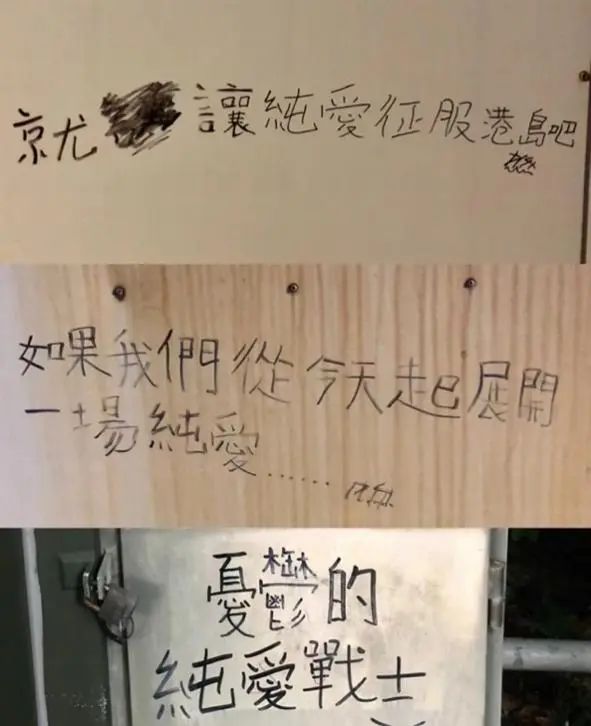 就讓純愛征服港島吧
如果我們從今天起展開
一場純愛……
憂鬱的
純愛戰士